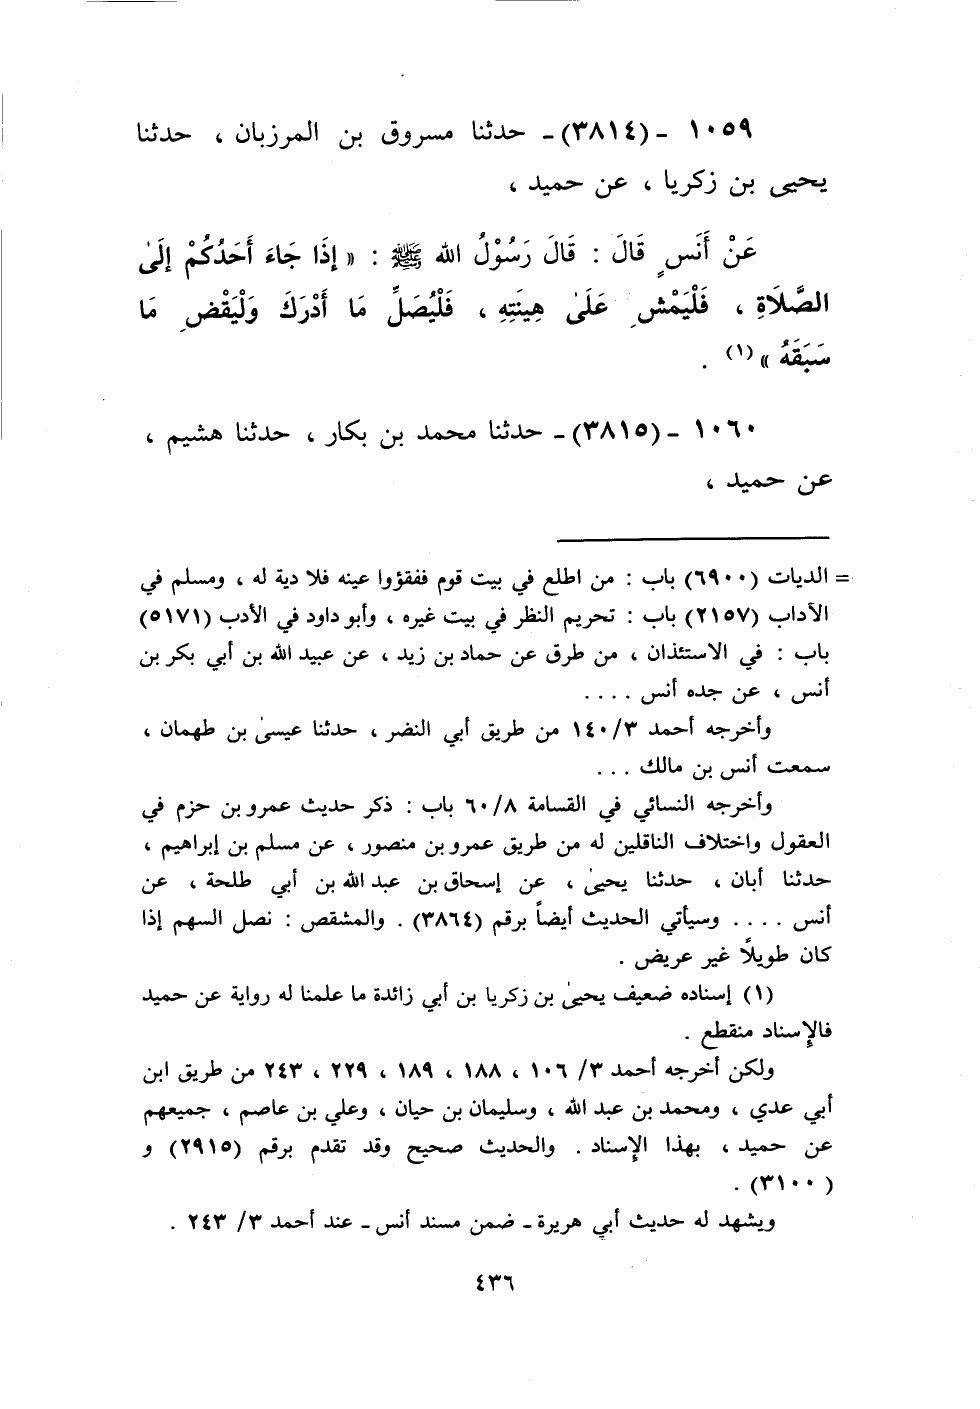 ١٠٥٩ - (٣٨١٤) - حدثنا مسروق بن المرزبان ، حدثنا
يحيى بن زكريا ، عن حميد ،
عَنْ أَنَسٍ قَالَ : قَالَ رَسُوْلُ الله ﷺ : « إِذَا جَاءَ أَحَدُكُمْ إِلَىٰ
الصَّلَاةِ ، فَلْيَمْشِ عَلَىٰ هِينَتِهِ ، فَلْيُصَلِّ مَا أَدْرَكَ وَلْيَقْضِ مَا
سَبَقَهُ » (١) .
١٠٦٠ - (٣٨١٥) - حدثنا محمد بن بكار ، حدثنا هشيم ،
عن حميد ،
= الديات (٦٩٠٠) باب : من اطلع في بيت قوم ففقؤوا عينه فلا دية له ، ومسلم في
الآداب (٢١٥٧) باب : تحريم النظر في بيت غيره ، وأبو داود في الأدب (٥١٧١)
باب : في الاستئذان ، من طرق عن حماد بن زيد ، عن عبيد الله بن أبي بكر بن
أنس ، عن جده أنس ....
وأخرجه أحمد ١٤٠/٣ من طريق أبي النضر ، حدثنا عيسىٰ بن طهمان ،
سمعت أنس بن مالك ...
وأخرجه النسائي في القسامة ٦٠/٨ باب : ذكر حديث عمرو بن حزم في
العقول واختلاف الناقلين له من طريق عمرو بن منصور ، عن مسلم بن إبراهيم ،
حدثنا أبان ، حدثنا يحيىٰ ، عن إسحاق بن عبد الله بن أبي طلحة ، عن
أنس .... وسيأتي الحديث أيضاً برقم (٣٨٦٤) . والمشقص : نصل السهم إذا
كان طويلاً غير عريض .
(١) إسناده ضعيف يحيىٰ بن زكريا بن أبي زائدة ما علمنا له رواية عن حميد
فالإسناد منقطع .
ولكن أخرجه أحمد ٣/ ١٠٦ ، ١٨٨ ، ١٨٩ ، ٢٢٩ ، ٢٤٣ من طريق ابن
أبي عدي ، ومحمد بن عبد الله ، وسليمان بن حيان ، وعلي بن عاصم ، جميعهم
عن حميد ، بهذا الإسناد . والحديث صحيح وقد تقدم برقم (٢٩١٥) و
(٣١٠٠) .
ويشهد له حديث أبي هريرة - ضمن مسند أنس - عند أحمد ٣/ ٢٤٣ .
٤٣٦